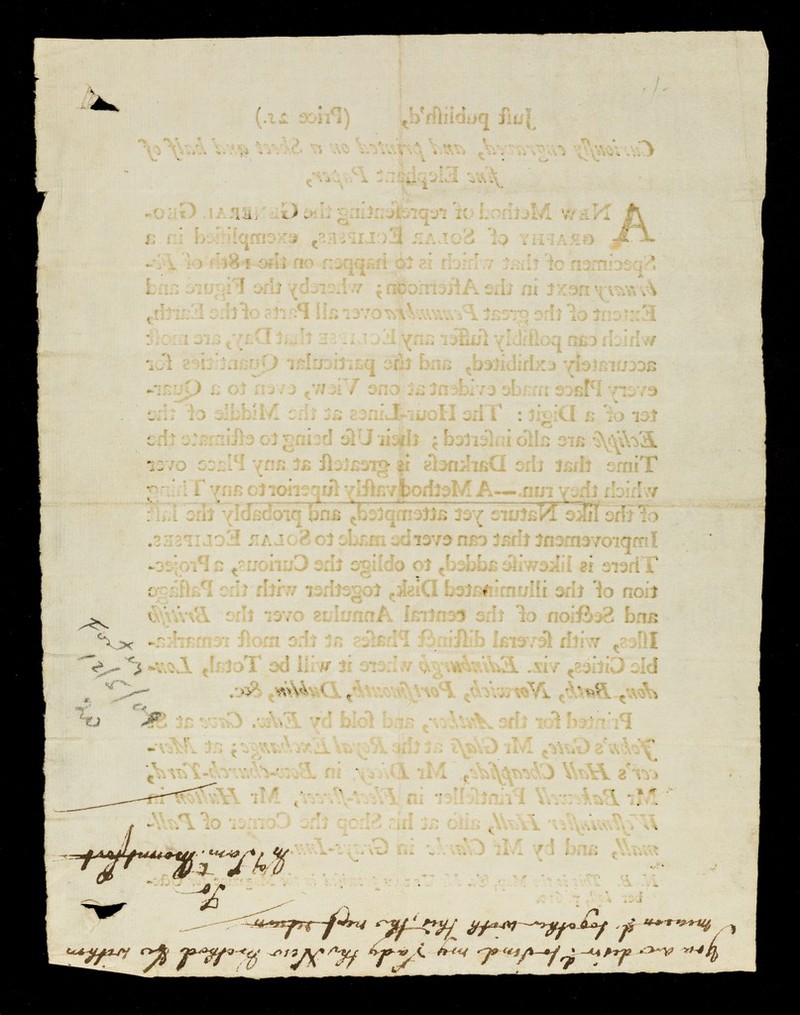 Juſt publiſh'd, (Price 2s.)
Curiouſly engraved, and printed on a Sheet and half of
fine Elephant Paper,
A NEW Method of repreſenting the GENERAL GEO-
GRAPHY of SOLAR ECLIPSES, exemplified in a
Specimen of that which is to happen on the 18th of Fe-
bruary next in the Afternoon; whereby the Figure and
Extent of the great Penumbra over all Parts of the Earth,
which can poſſibly ſuffer any ECLIPSE that Day, are moſt
accurately exhibited, and the particular Quantities for
every Place made evident at one View, even to a Quar-
ter of a Digit: The Hour-Lines at the Middle of the
Eclipſe are alſo inſerted; their Uſe being to eſtimate the
Time that the Darkneſs is greateſt at any Place over
which they run.—A Method vaſtly ſuperior to any Thing
of the like Nature yet attempted, and probably the laſt
Improvement that can ever be made to SOLAR ECLIPSES.
There is likewiſe added, to oblige the Curious, a Projec-
tion of the illuminated Disk, together with the Paſſage
and Section of the central Annulus over the Britiſh
Iſles, with ſeveral diſtinct Phaſes at the moſt remarka-
ble Cities, viz. Edinburgh where it will be Total, Lon-
don, Bath, Norwich, Portſmouth, Dublin, &c.
Printed for the Author, and ſold by Edw. Cave at St
John's Gate, Mr Glaſs at the Royal Exchange; at Mer-
cer's Hall Cheapſide, Mr Dicey in Bow-church-Yard;
Mr Bakewell Printſeller in Fleet-ſtreet, Mr Hulton in
Weſtminſter Hall, alſo at his Shop the Corner of Pall-
mall, and by Mr Clarke in Grays-Inn.
You are desir'd to send my Lady the New Method &c within
mention'd together with this, the next return
To
Mr Sam: Mountfort